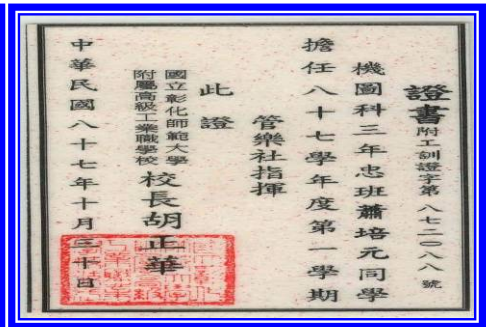 證書 附工訓證字第八七二〇八八號
機圖科三年忠班蕭培元同學
擔任八十七學年度第一學期
管樂社指揮
此證
國立彰化師範大學
附屬高級工業職業學校
校長胡正華
中華民國八十七年十月三十日